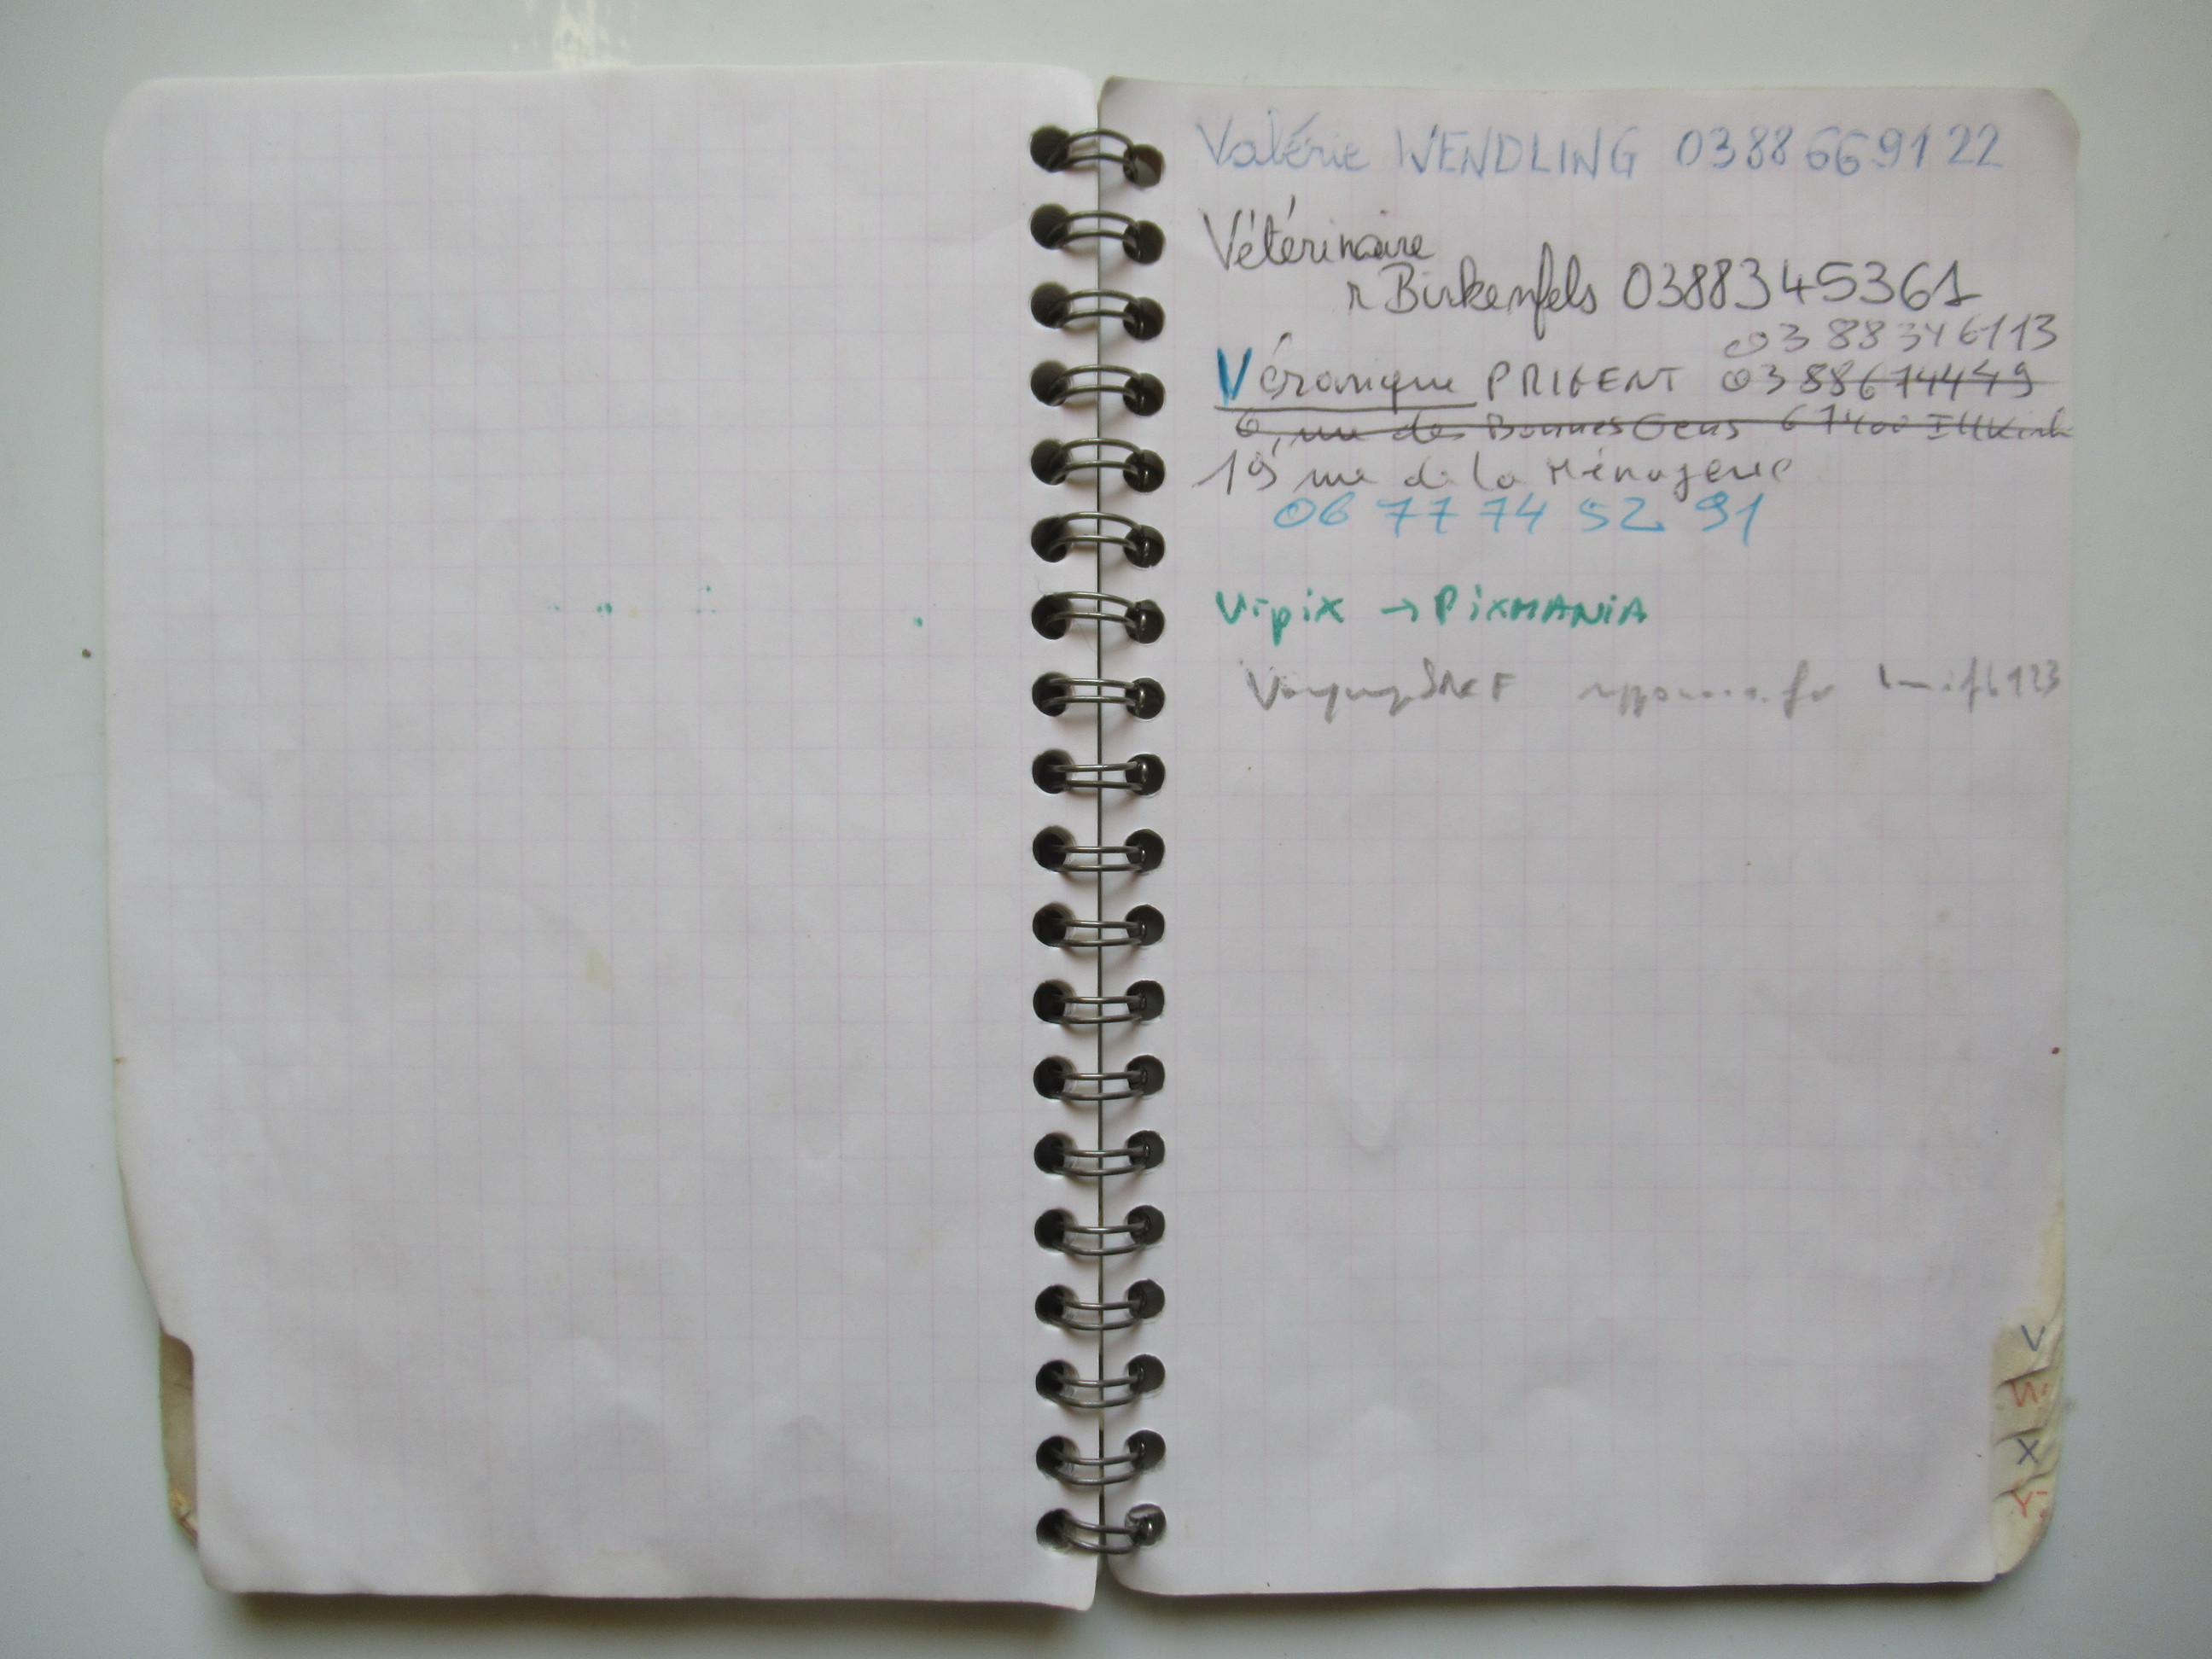 Valérie WENDLING 0388669122
Vétérinaire
r Birkenfels 0388345361
03 88 34 61 13
Véronique PRIGENT 03 88 67 44 49
6, rue des Bonnes Gens 67400 Illkirch
19 rue de la Ménagerie
06 77 74 52 91
Vipix → PiXMANiA
V
W
X
Y